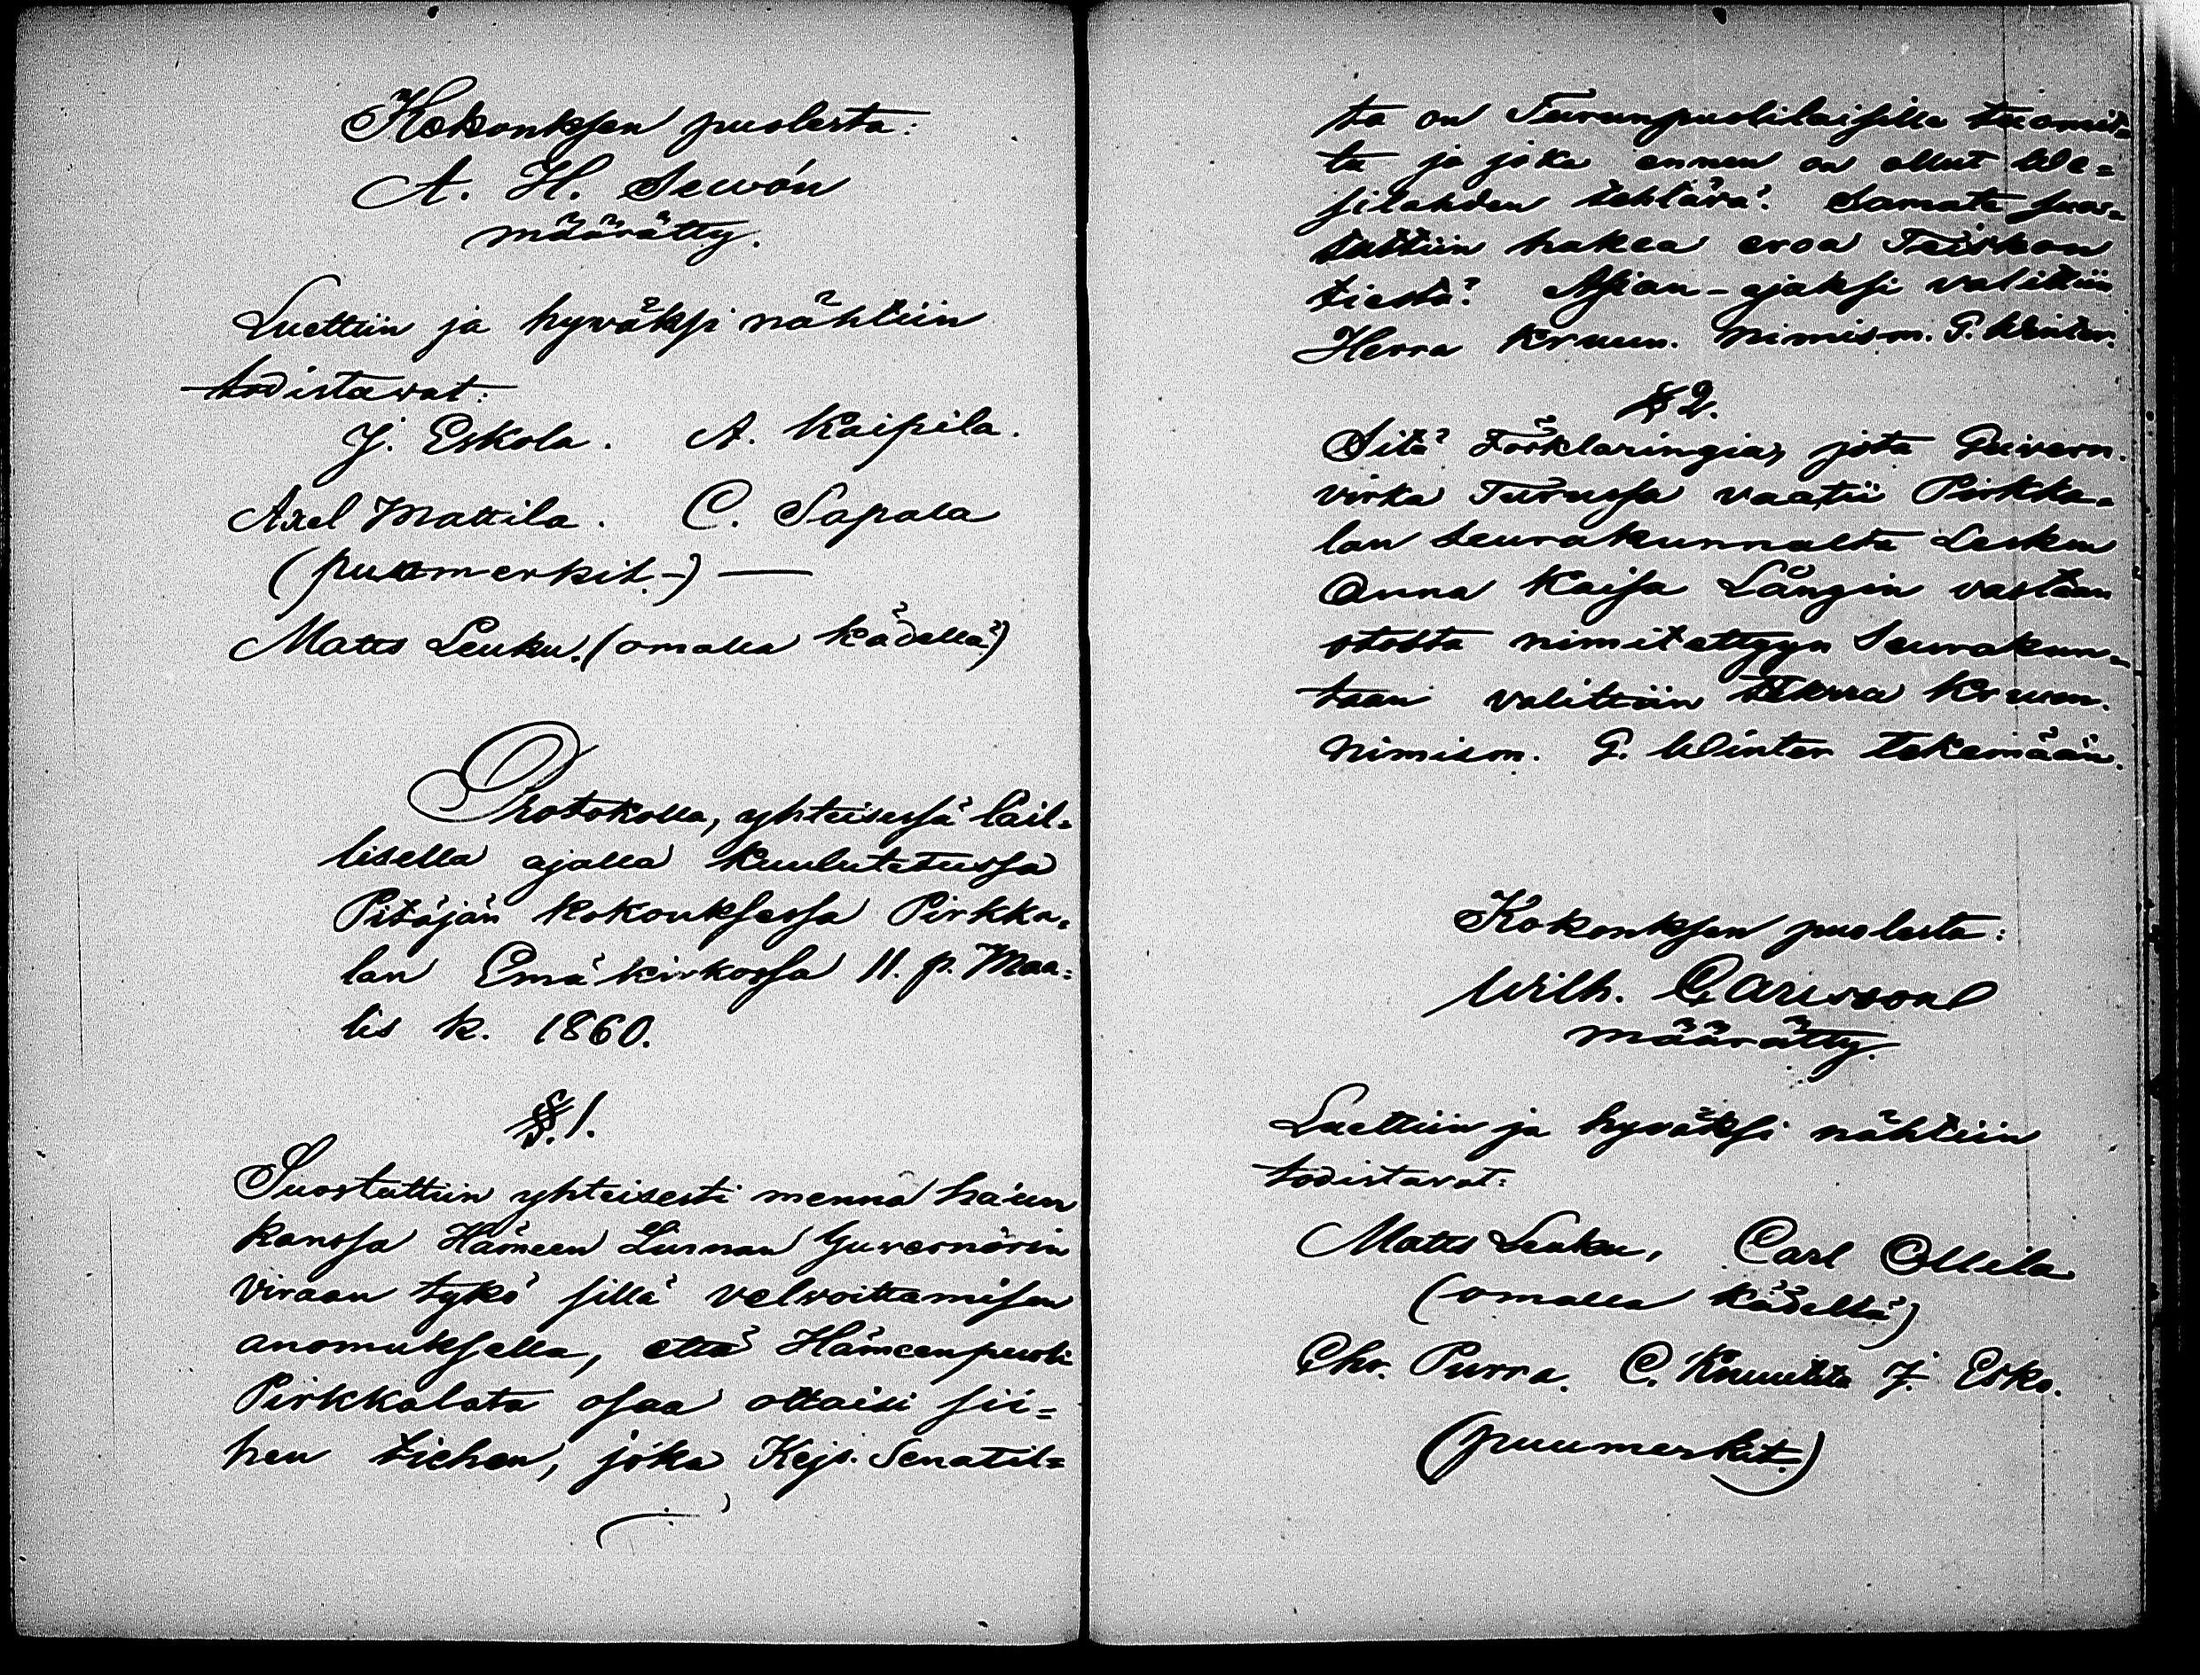 Kokouksen puolesta:
A. H. Sewón
määrätty.
Luettiin ja hyväksi nähtiin
todistavat:
J. Eskola. A. Kaipila.
Axel Mattila. C. Sapala
(puumerkit.-)
Matts Leuku. (omalla kädellä)
Protokolla, yhteisessä lail=
lisella ajalla kuulutetussa
Pitäjän kokouksessa Pirkka=
lan Emäkirkossa 11. p. Maa=
lis k. 1860.
§.1.
Suostuttiin yhteisesti mennä ha'un
kanssa Hämeen Linnan Guvernörin
viraan tykö sillä velvoittamisen
anomuksella, että Hämeenpuoli
Pirkkalata osaa ottaisi sii=
hen tiehen, joka Kejs. Senatil=
ta on Turunpuolilaisille tuomit=
tu ja joka ennen on ollut We=
silahden tehtävä. Samate suos=
tuttiin hakea eroa Teiskon
tiestä. Asian-ajaksi valittiin
Herra Kruun. Nimism. G. Winter.
§ 2.
Sitä Förklaringia, jota Guvern.
virka Turussa vaatii Pirkka=
lan seurakunnalta Lesken
Anna Kaisa Långin vastaan
otosta nimitettyyn Seurakun=
taan valittiin Herra Kruun.
Nimism. G. Winter tekemään.
Kokouksen puolesta:
Wilh. Carlsson
määrätty.
Luettiin ja hyväksi nähtiin
todistavat:
Matts Leuku, Carl Ollila
(omalla kädellä)
Chr. Purra. C. Knuutila J. Esko.
(puumerkit.)